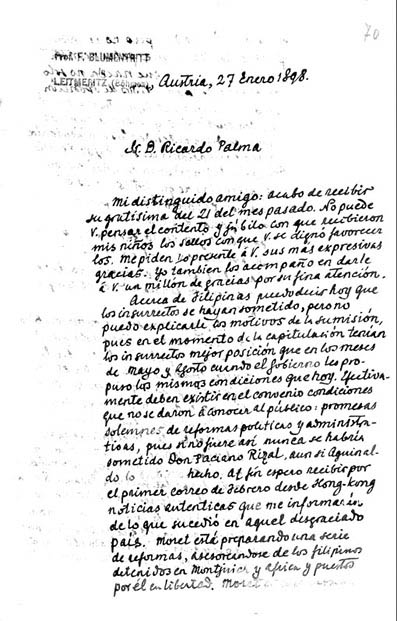 70
Prof. F. BLUMENTRITT
LEITMERITZ
Austria, 27 Enero 1898.
S. D. Ricardo Palma
Mi distinguido amigo: acabo de recibir
su gratísima del 21 del mes pasado. No puede
V. pensar el contento y júbilo con que recibieron
mis niños los sellos con que V. se dignó favorecer
los. Me piden los presente á V. sus más expresivas
gracias. Yo tambien los acompaño en darle
á V. un millón de gracias por su fina atención.
Acerca de Filipinas puedo decir hoy que
los insurrectos se hayan sometido, pero no
puedo explicarle los motivos de la sumisión,
pues en el momento de la capitulación tenían
los insurrectos mejor posición que en los meses
de Mayo y Agosto cuando el gobierno les pro-
puso las mismas condiciones que hoy. Efectiva-
mente deben existir en el convenio condiciones
que no se daron á conocer al público: promesas
solemnes de reformas políticas y administra-
tivas, pues si no fuere así nunca se habría
sometido Don Paciano Rizal, aun si Aguinal-
do lo hecho. Al fin espero recibir por
el primer correo de Febrero desde Hong-Kong
noticias autenticas que me informarán
de lo que sucedió en aquel desgraciado
país. Moret está preparando una serie
de reformas, asesorándose de los filipinos
detenidos en Montjuich y Africa y puestos
por él en libertad. Moret